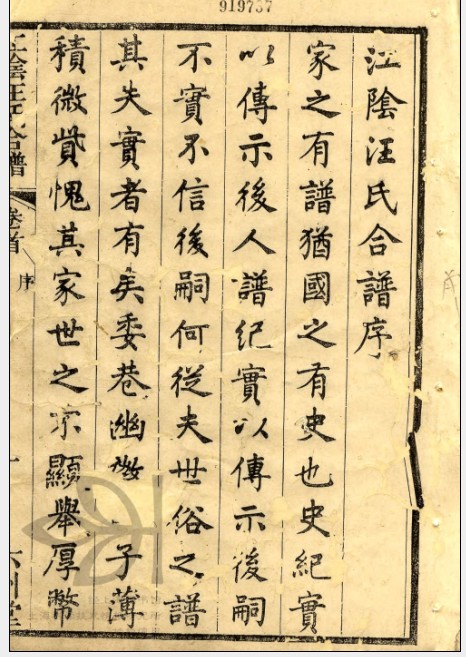 919737
江陰汪氏合譜序
家之有譜猶國之有史也史紀實
以傳示後人譜紀實以傳示後嗣
不實不信後嗣何從夫世俗之譜
其失實者有矣委巷幽微子薄
積微貲愧其家世之不顯舉厚幣
江陰汪氏合譜
卷首
序
一
六州堂